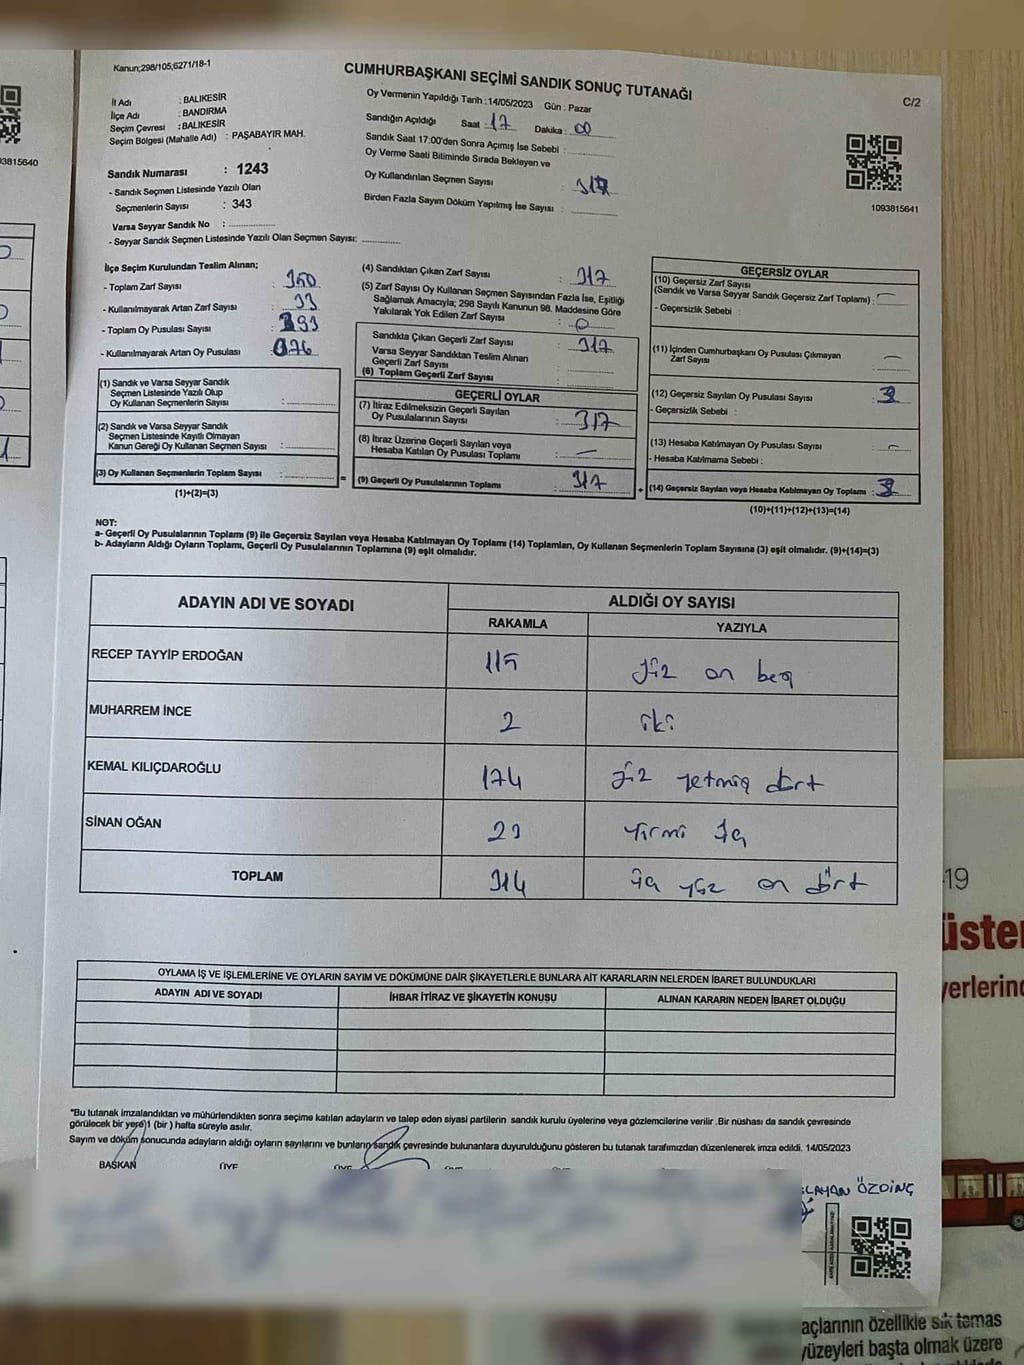 Kanun;298/105;6271/18-1
CUMHURBAŞKANI SEÇİMİ SANDIK SONUÇ TUTANAĞI
C/2
İl Adı : BALIKESİR
İlçe Adı : BANDIRMA
Seçim Çevresi : BALIKESİR
Seçim Bölgesi (Mahalle Adı) : PAŞABAYIR MAH.
Sandık Numarası : 1243
- Sandık Seçmen Listesinde Yazılı Olan
Seçmenlerin Sayısı : 343
Varsa Seyyar Sandık No :
- Seyyar Sandık Seçmen Listesinde Yazılı Olan Seçmen Sayısı:
Oy Vermenin Yapıldığı Tarih : 14/05/2023 Gün : Pazar
Sandığın Açıldığı Saat : 17 Dakika : 00
Sandık Saat 17:00'den Sonra Açımış İse Sebebi :
Oy Verme Saati Bitiminde Sırada Bekleyen ve
Oy Kullandırılan Seçmen Sayısı : 317
Birden Fazla Sayım Döküm Yapılmış İse Sayısı :
1093815641
93815640
İlçe Seçim Kurulundan Teslim Alınan;
- Toplam Zarf Sayısı : 350
- Kullanılmayarak Artan Zarf Sayısı : 33
- Toplam Oy Pusulası Sayısı : 393
- Kullanılmayarak Artan Oy Pusulası : 076
(1) Sandık ve Varsa Seyyar Sandık
Seçmen Listesinde Yazılı Olup
Oy Kullanan Seçmenlerin Sayısı :
(2) Sandık ve Varsa Seyyar Sandık
Seçmen Listesinde Kayıtlı Olmayan
Kanun Gereği Oy Kullanan Seçmen Sayısı :
(3) Oy Kullanan Seçmenlerin Toplam Sayısı :
(1)+(2)=(3)
(4) Sandıktan Çıkan Zarf Sayısı : 317
(5) Zarf Sayısı Oy Kullanan Seçmen Sayısından Fazla İse, Eşitliği
Sağlamak Amacıyla; 298 Sayılı Kanunun 98. Maddesine Göre
Yakılarak Yok Edilen Zarf Sayısı : 0
Sandıkta Çıkan Geçerli Zarf Sayısı : 317
Varsa Seyyar Sandıktan Teslim Alınan
Geçerli Zarf Sayısı :
(6) Toplam Geçerli Zarf Sayısı :
GEÇERLİ OYLAR
(7) İtiraz Edilmeksizin Geçerli Sayılan
Oy Pusulalarının Sayısı : 317
(8) İtiraz Üzerine Geçerli Sayılan veya
Hesaba Katılan Oy Pusulası Toplamı : —
(9) Geçerli Oy Pusulalarının Toplamı : 317
GEÇERSİZ OYLAR
(10) Geçersiz Zarf Sayısı
(Sandık ve Varsa Seyyar Sandık Geçersiz Zarf Toplamı) : —
- Geçersizlik Sebebi :
(11) İçinden Cumhurbaşkanı Oy Pusulası Çıkmayan
Zarf Sayısı : —
(12) Geçersiz Sayılan Oy Pusulası Sayısı : 3
- Geçersizlik Sebebi :
(13) Hesaba Katılmayan Oy Pusulası Sayısı : —
- Hesaba Katılmama Sebebi :
(14) Geçersiz Sayılan veya Hesaba Katılmayan Oy Toplamı : 3
(10)+(11)+(12)+(13)=(14)
NOT:
a- Geçerli Oy Pusulalarının Toplamı (9) ile Geçersiz Sayılan veya Hesaba Katılmayan Oy Toplamı (14) Toplamları, Oy Kullanan Seçmenlerin Toplam Sayısına (3) eşit olmalıdır. (9)+(14)=(3)
b- Adayların Aldığı Oyların Toplamı, Geçerli Oy Pusulalarının Toplamına (9) eşit olmalıdır.
ADAYIN ADI VE SOYADI ALDIĞI OY SAYISI
RAKAMLA YAZIYLA
RECEP TAYYİP ERDOĞAN 115 yüz on beş
MUHARREM İNCE 2 iki
KEMAL KILIÇDAROĞLU 174 yüz yetmiş dört
SİNAN OĞAN 23 yirmi üç
TOPLAM 314 üç yüz on dört
OYLAMA İŞ VE İŞLEMLERİNE VE OYLARIN SAYIM VE DÖKÜMÜNE DAİR ŞİKAYETLERLE BUNLARA AİT KARARLARIN NELERDEN İBARET BULUNDUKLARI
ADAYIN ADI VE SOYADI İHBAR İTİRAZ VE ŞİKAYETİN KONUSU ALINAN KARARIN NEDEN İBARET OLDUĞU
*Bu tutanak imzalandıktan ve mühürlendikten sonra seçime katılan adayların ve talep eden siyasi partilerin sandık kurulu üyelerine veya gözlemcilerine verilir .Bir nüshası da sandık çevresinde
görülecek bir yere 1 (bir ) hafta süreyle asılır.
Sayım ve döküm sonucunda adayların aldığı oyların sayılarını ve bunların sandık çevresinde bulunanlara duyurulduğunu gösteren bu tutanak tarafımızdan düzenlenerek imza edildi. 14/05/2023
BAŞKAN ÜYE ÜYE
ÖZDİNÇ
19
üster
yerlerind
açlarının özellikle sık temas
yüzeyleri başta olmak üzere